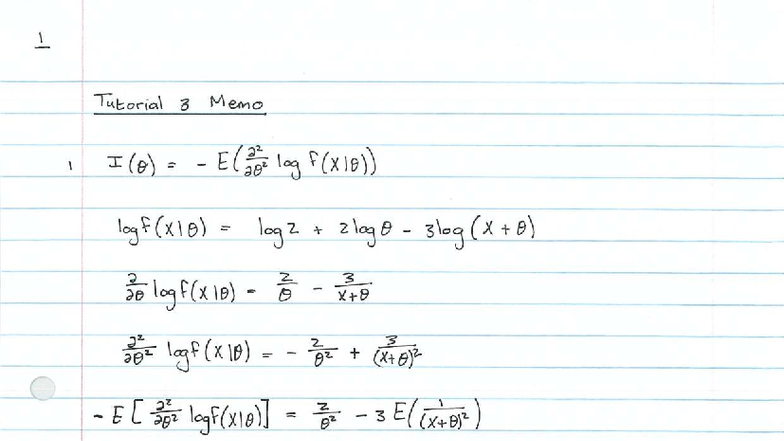 1
Tutorial 3 Memo
1 I(θ) = - E(∂²/∂θ² log f(X|θ))
log f(X|θ) = log 2 + 2 log θ - 3 log (X + θ)
∂/∂θ log f(X|θ) = 2/θ - 3/(X+θ)
∂²/∂θ² log f(X|θ) = - 2/θ² + 3/(X+θ)²
- E [ ∂²/∂θ² log f(X|θ)] = 2/θ² - 3 E(1/(X+θ)²)